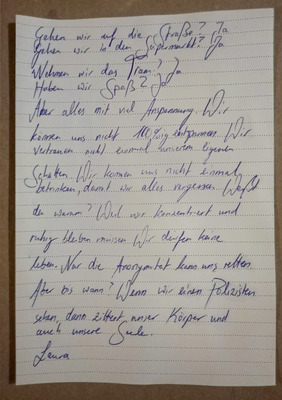 Gehen wir auf die Straße? Ja
Gehen wir in den Supermarkt? Ja
Nehmen wir das Tram? Ja
Haben wir Spaß? Ja
Aber alles mit viel Anspannung. Wir
konnen uns nicht 100%ig entspannen. Wir
vertrauen nicht einmal unserem eigenen
Schatten. Wir konnen uns nicht einmal
betrinken, damit wir alles vergessen. Weißt
du warum? Weil wir konzentriert und
ruhig bleiben mussen. Wir durfen keine
leben. Nur die Anonymitat kann uns retten.
Aber bis wann? Wenn wir einen Polizisten
sehen, dann zittert unser Körper und
auch unsere Seele.
Laura